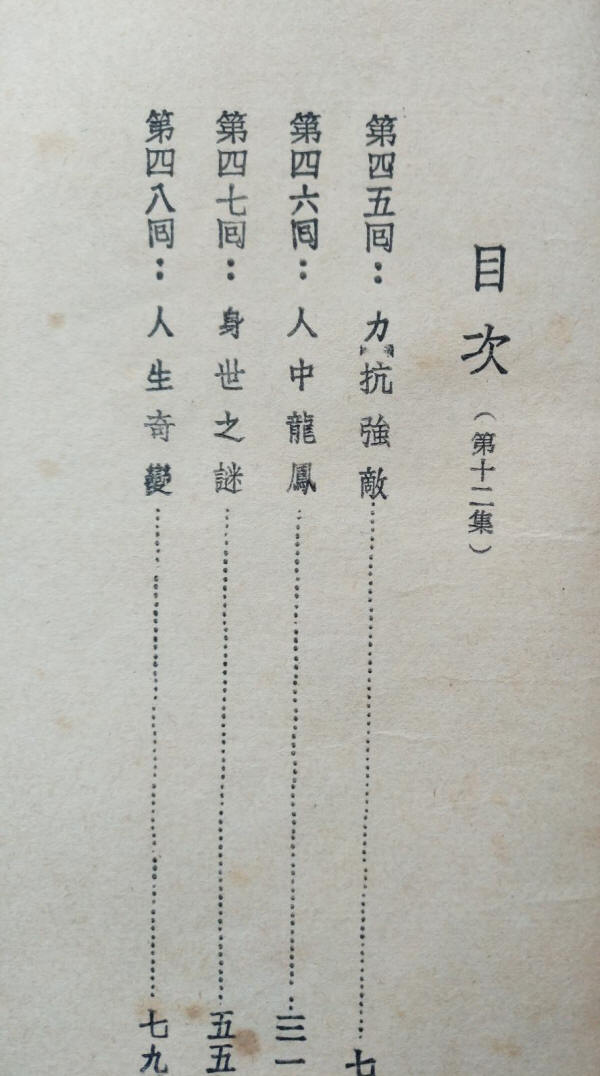 目次（第十二集）
第四五囘：力抗強敵……七
第四六囘：人中龍鳳……三一
第四七囘：身世之謎……五五
第四八囘：人生奇變……七九